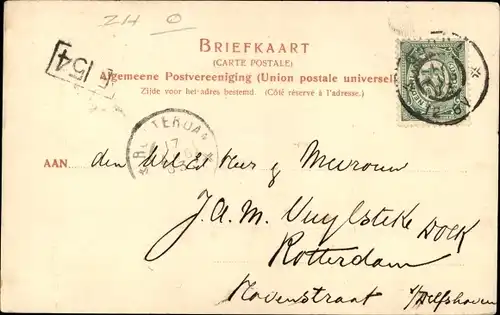 ZH O
54
BRIEFKAART
(CARTE POSTALE)
Algemeene Postvereeniging (Union postale universelle)
Zijde voor het adres bestemd. (Côté réservé à l'adresse.)
ROTTERDAM
17
AAN den Wel Ed Heer & Mevrouw
J.A.M. Vuylsteke
DOCK
Rotterdam
Havenstraat
s/Delfshaven